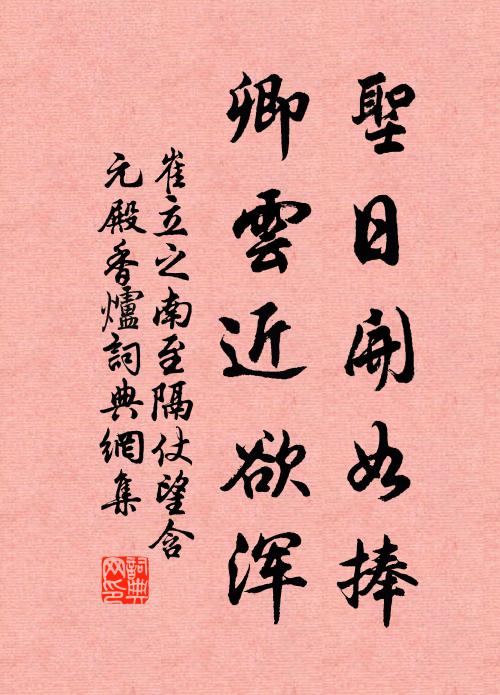 聖日開如捧
卿雲近欲渾
崔立之南至隔仗望含
元殿香爐詞典網集
詞典
网印